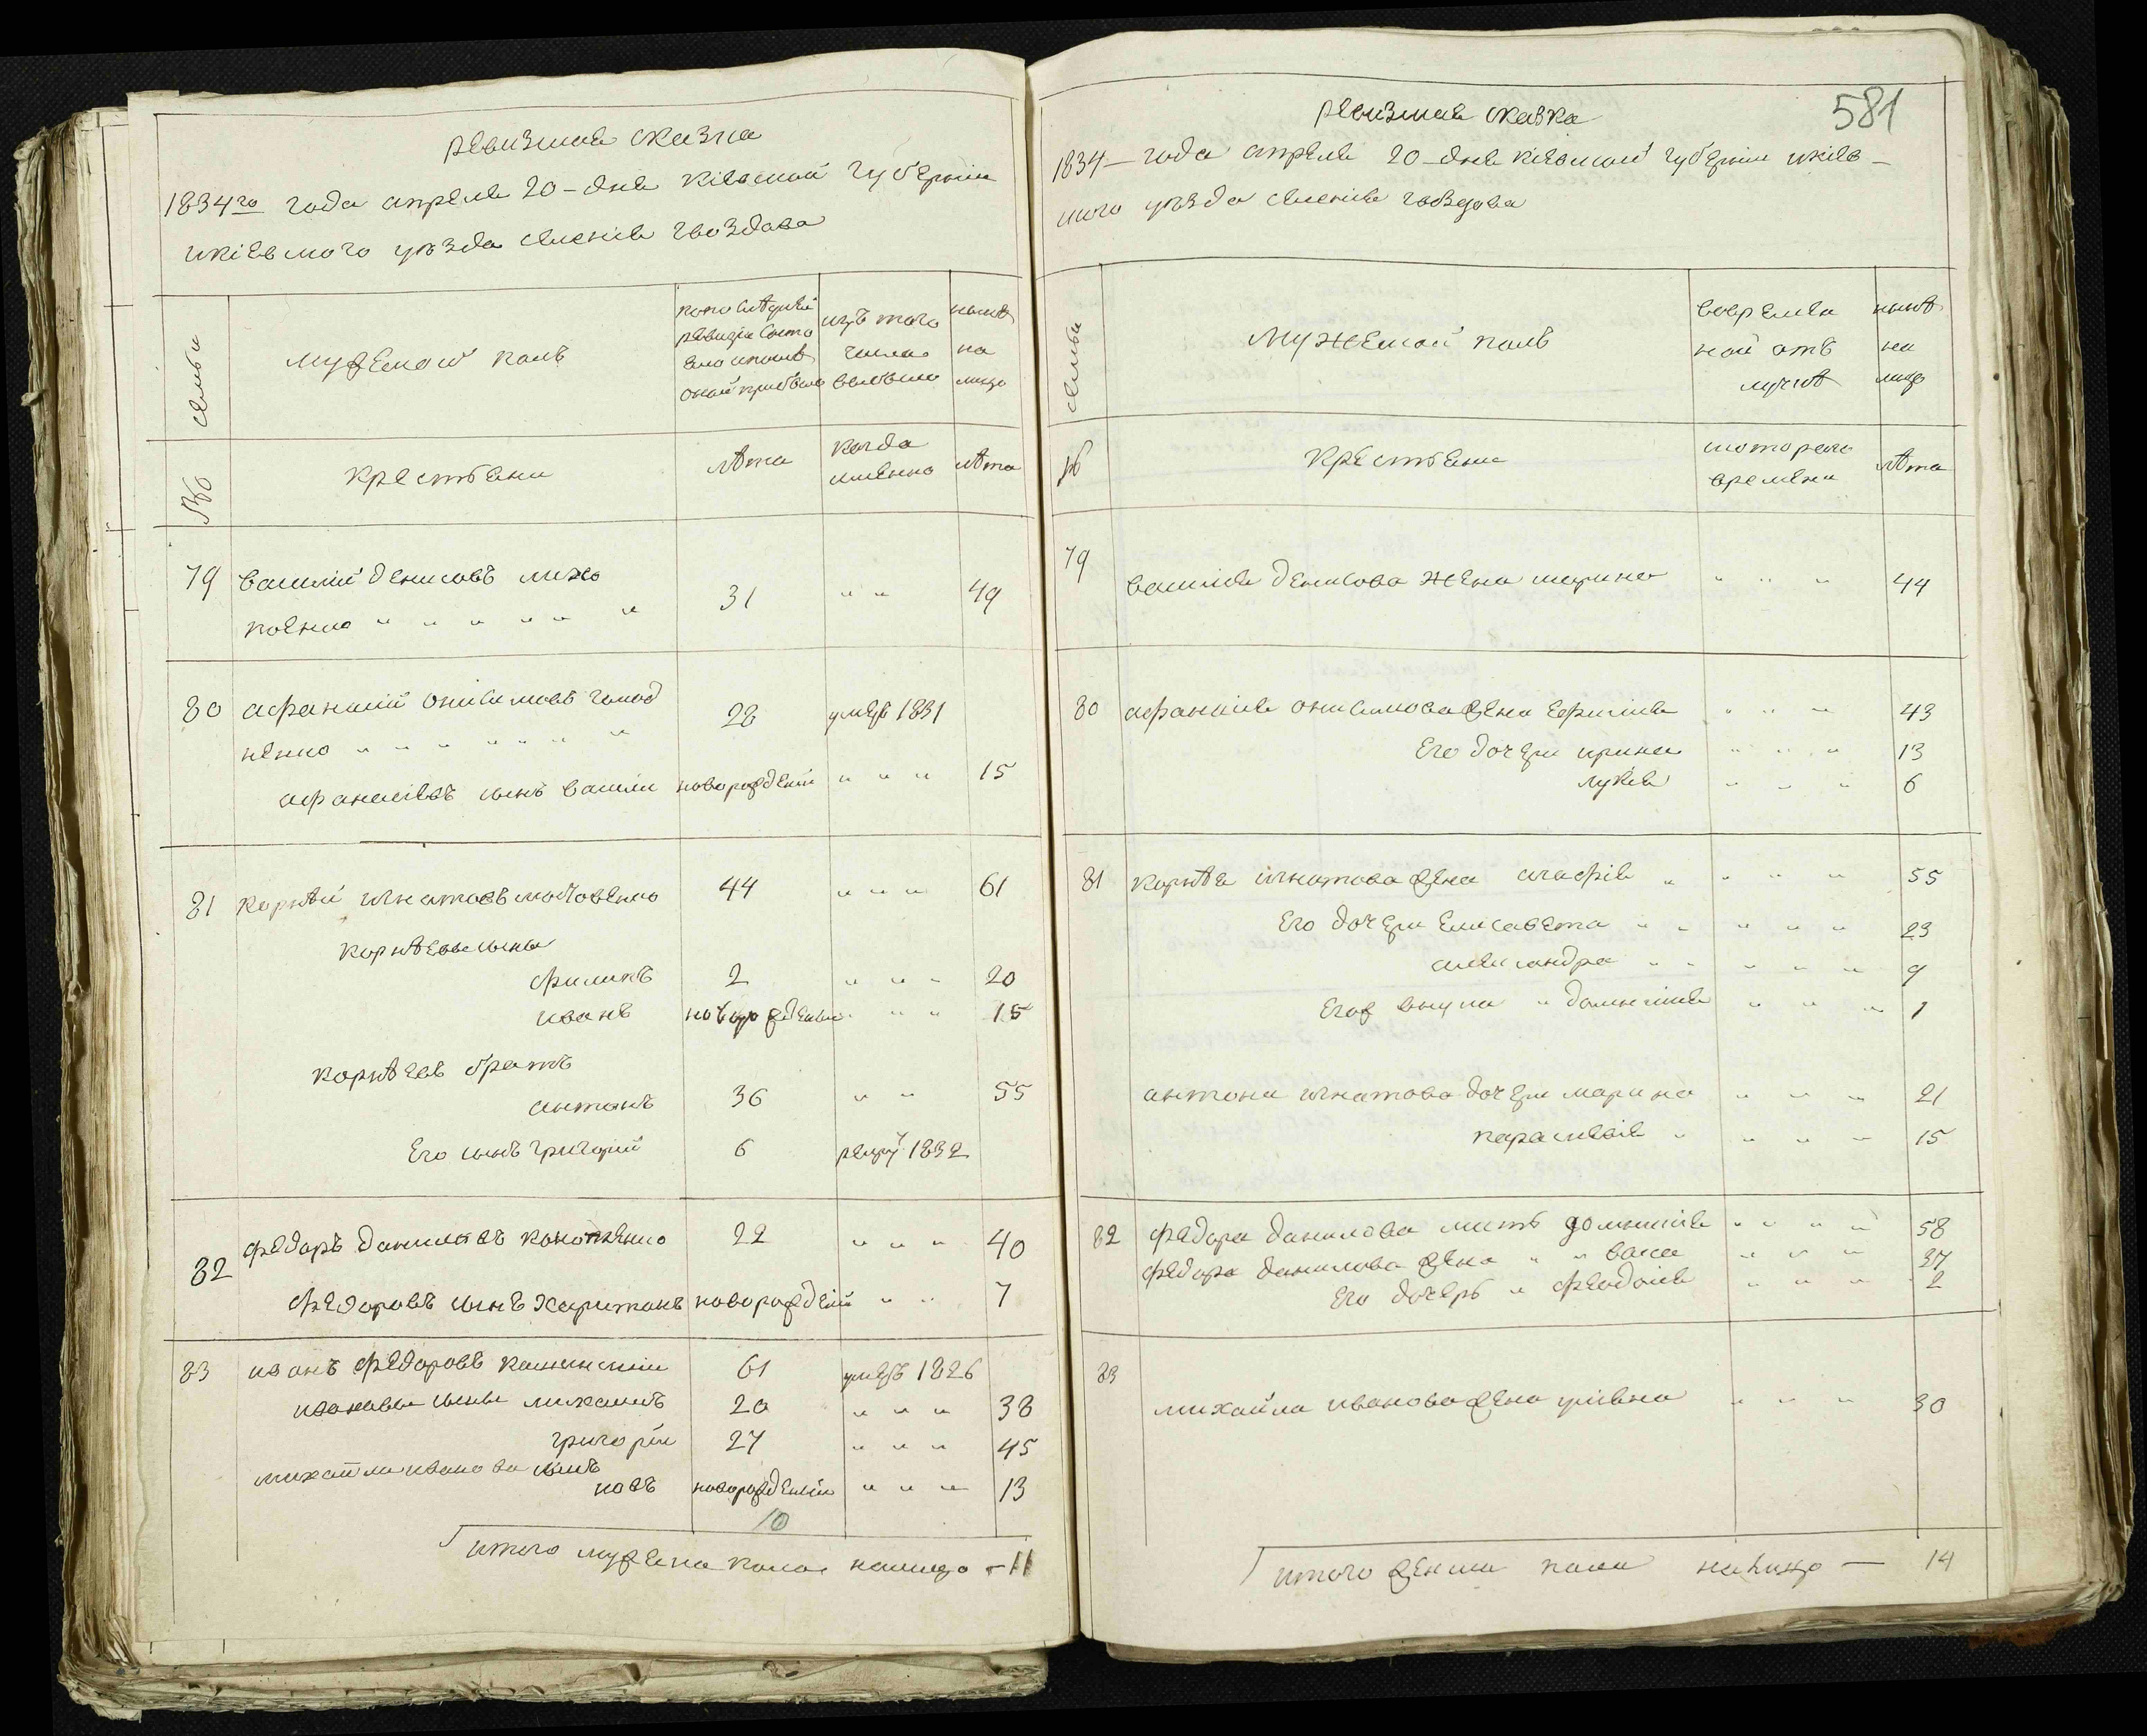 ревизная сказка
1834го года апреля 20-дня кіевской губерніи
икіевского уѣзда селенія гвоздова
семьи
мужеской полъ
попоследней
ревизіи состо
яло ипослѣ
оной прибыло
изъ того
числа
выбыло
нынѣ
на
лицо
№
крестьяни
лѣта
когда
именно
лѣта
79 василій денисовъ
31 " " 49
80 афанасій онисимовъ голод
ненко " " " " " " "
28 умеръ 1831
афанасіевъ сынъ васили новорожденій " " " 15
81 корнѣй игнатовъ 44 " " " 61
корнѣевы сыны
филипъ 2 " " " 20
иванъ новорожденый " " " 15
корнѣевъ братъ
антонъ 36 " " 55
Его сынъ григорій 6 рекру 1832
82 федоръ даниловъ конопленко 22 " " " 40
федоровъ сынъ харитонъ новорожденій " " 7
83 иванъ федоровъ 61 умеръ 1826
ивановы сыны михаилъ 20 " " " 38
григорій 27 " " " 45
михайла иванова сынъ
новорожденій " " " 13
10
итого мужеска пола налицо - 11
581
ревизная сказка
1834 - года апреля 20-дня кіевской губерніи икіев-
ского уѣзда селенія гвоздова
семьи
мужеской полъ
вовремен
ной отъ
лучкѣ
нынѣ
на
лицо
№
крестьяни
скоторого
времени
лѣта
79
василія денисова жена марина " " " 44
80 афанасія онисимова жена Ефимія " " " 43
Его дочери ирина " " " 13
лукія " " " 6
81 корнѣя игнатова жена агафія " " " " 55
Его дочери Елисавета " " " " " 23
александра " " " " " 9
внука " домникія " " " 1
антона игнатова дочери марина " " " 21
парасковія " " " " 15
82 федора данилова мать домникія " " " " 58
федора данилова жена " " васса " " " 37
Его дочерь " феодосія " " " 2
83
михайла иванова жена " " " 30
итого женска пола налицо — 14